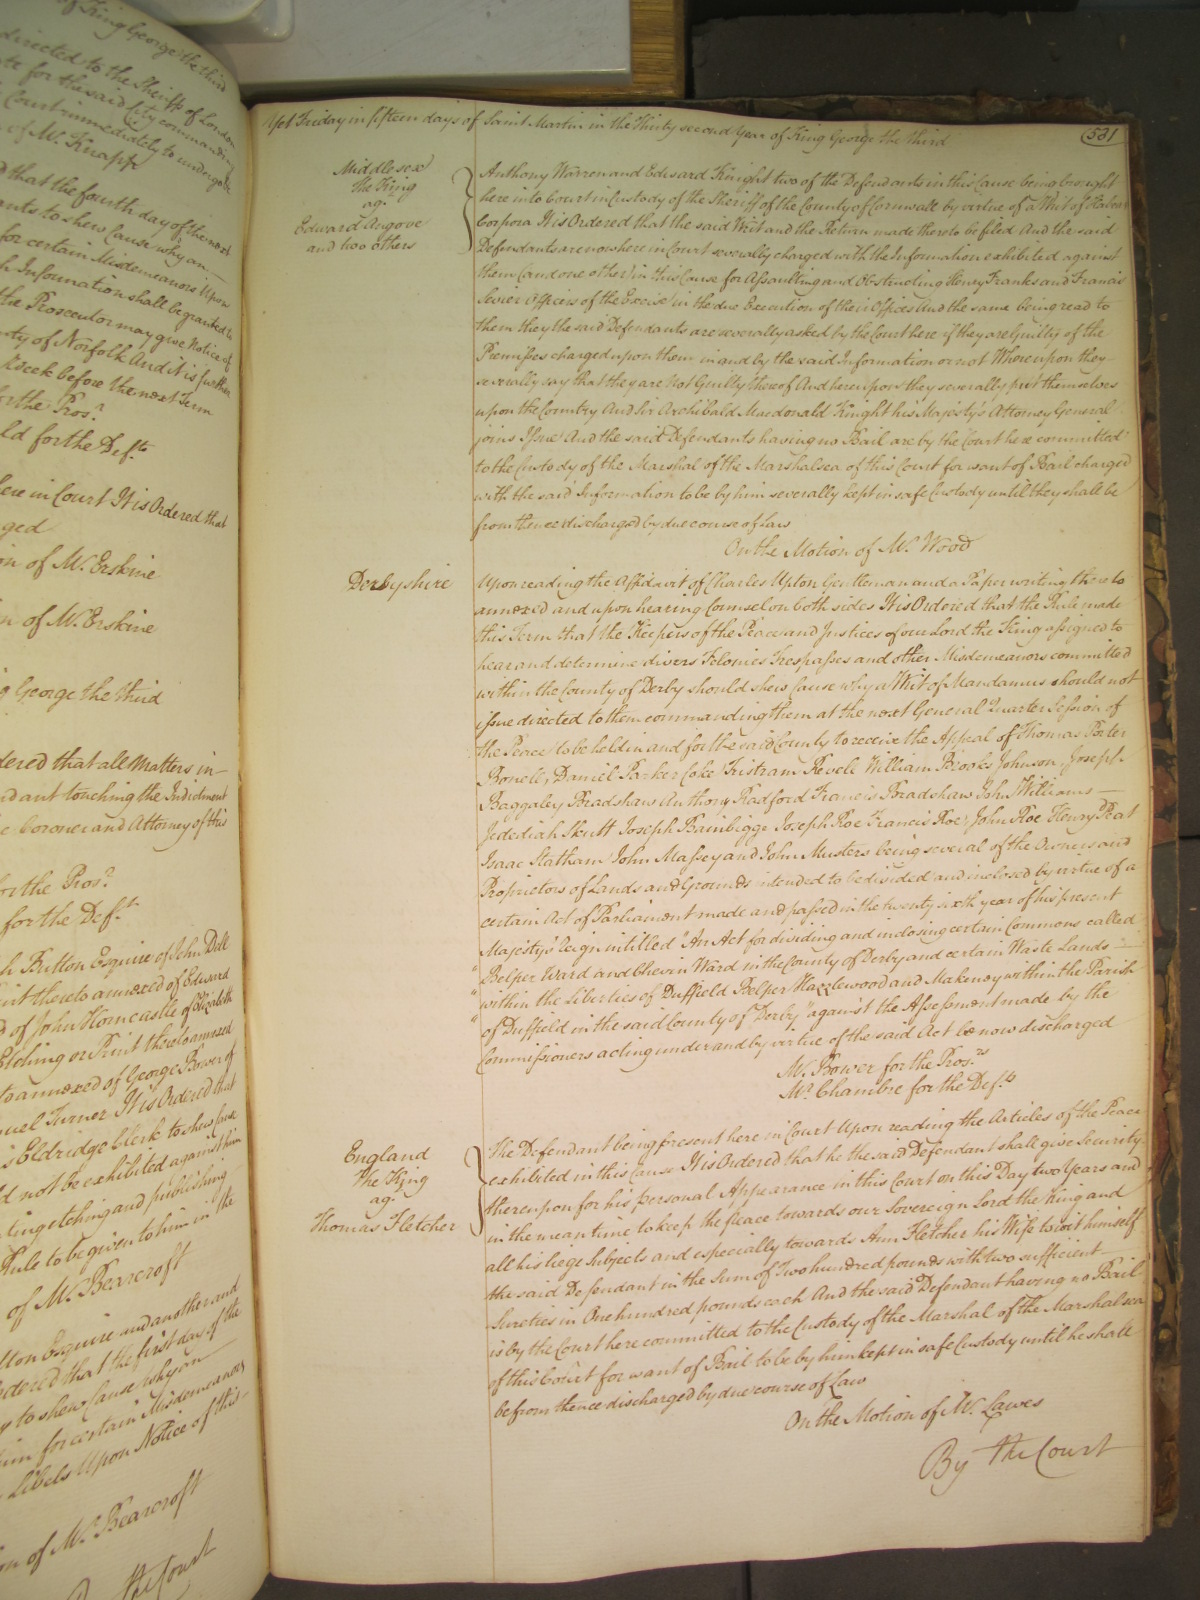 of King George the third
directed to the Sheriffs of London
for the said City commanding
Court immediately to undergo
of Mr. Knapp
that the fourth day of the next
to shew Cause why an
for certain Misdemeanors Upon
Information shall be granted
the Prosecutor may give Notice of
of Norfolk And it is further
Week before the next Term
for the Pros.r
for the Def.ts
here in Court It is Ordered that
of Mr. Erskine
of Mr. Erskine
George the third
that all Matters in
touching the Indictment
Coroner and Attorney of this
for the Pros.r
for the Def.t
Button Esquire of John Dell
thereto annexed of Edward
of John Horncastle of Elizabeth
Etching or Print thereto annexed
annexed of George Bower of
Turner It is Ordered that
Eldridge Clerk to shew Cause
not be exhibited against him
etching and publishing
Rule to be given to him in the
of Mr. Bearcroft
Esquire and another and
that the first day of the
to shew Cause why an
for certain Misdemeanors
Libels Upon Notice of this
of Mr. Bearcroft
the Court
Yet Friday in fifteen days of Saint Martin in the Thirty second Year of King George the third
581
Middlesex
The King
ag.t
Edward Angove
and two others
Anthony Warren and Edward Knight two of the Defendants in this Cause being brought
here into Court in Custody of the Sheriff of the County of Cornwall by virtue of a Writ of Habeas
Corpora It is Ordered that the said Writ and the Return made thereto be filed And the said
Defendants are now here in Court severally charged with the Information exhibited against
them (and one other) in this Cause for Assaulting and Obstructing Henry Franks and Francis
Sevier Officers of the Excise in the due Execution of their Offices And the same being read to
them they the said Defendants are severally asked by the Court here if they are Guilty of the
Premisses charged upon them in and by the said Information or not Whereupon they
severally say that they are Not Guilty thereof And hereupon they severally put themselves
upon the Country And Sir Archibald Macdonald Knight his Majesty's Attorney General
joins Issue And the said Defendants having no Bail are by the Court here committed
to the Custody of the Marshal of the Marshalsea of this Court for want of Bail charged
with the said Information to be by him severally kept in safe Custody until they shall be
from thence discharged by due course of Law
On the Motion of Mr. Wood
Derbyshire
Upon reading the Affidavit of Charles Upton Gentleman and a Paper writing thereto
annexed and upon hearing Counsel on both sides It is Ordered that the Rule made
this Term that the Keepers of the Peace and Justices of our Lord the King assigned to
hear and determine divers Felonies Trespasses and other Misdemeanors committed
within the County of Derby should shew Cause why a Writ of Mandamus should not
issue directed to them commanding them at the next General Quarter Session of
the Peace to be held in and for the said County to receive the Appeal of Thomas Porter
Bonell, Daniel Parker Coke, Tristram Revell William Brooks Johnson, Joseph
Baggaley Bradshaw Anthony Radford Francis Bradshaw John Williams
Jedediah Strutt Joseph Bainbigge Joseph Roe Francis Roe, John Roe Henry Prat
Isaac Statham John Massey and John Musters being several of the Owners and
Proprietors of Lands and Grounds intended to be divided and inclosed by virtue of a
certain Act of Parliament made and passed in the twenty sixth year of his present
Majesty's Reign intitled "An Act for dividing and inclosing certain Commons called
"Belper Ward and Chevin Ward in the County of Derby and certain Waste Lands
"within the Liberties of Duffield Belper Hazzlewood and Makeney within the Parish
"of Duffield in the said County of Derby" against the Assessment made by the
Commissioners acting under and by virtue of the said Act be now discharged
Mr. Bower for the Pros.rs
Mr. Chambre for the Def.ts
England
The King
ag.t
Thomas Fletcher
The Defendant being present here in Court Upon reading the Articles of the Peace
exhibited in this Cause It is Ordered that he the said Defendant shall give Security
thereupon for his personal Appearance in this Court on this Day two Years and
in the mean time to keep the Peace towards our Sovereign Lord the King and
all his liege Subjects and especially towards Ann Fletcher his Wife to wit himself
the said Defendant in the Sum of Two hundred pounds with two sufficient
Sureties in One hundred pounds each And the said Defendant having no Bail
is by the Court here committed to the Custody of the Marshal of the Marshalsea
of this Court for want of Bail to be by him kept in safe Custody until he shall
be from thence discharged by due course of Law
On the Motion of Mr. Lawes
By the Court